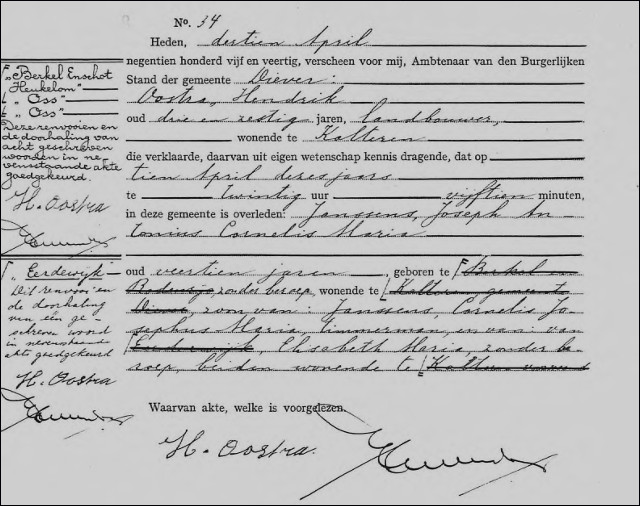 No. 34
Heden, dertien April
negentien honderd vijf en veertig, verscheen voor mij, Ambtenaar van den Burgerlijken
Stand der gemeente Diever:
Oostra, Hendrik
oud drie en zestig jaren, landbouwer,
wonende te Kalteren
die verklaarde, daarvan uit eigen wetenschap kennis dragende, dat op
tien April dezes jaars
te twintig uur vijftien minuten,
in deze gemeente is overleden: Janssens, Joseph An-
tonius Cornelis Maria
oud veertien jaren, geboren te Berkel en
zonder beroep, wonende te Kalteren gemeente
Diever, zoon van: Janssens, Cornelis Jo-
sephus Maria, timmerman, en van: van
Elisabeth Maria, zonder be-
roep, beiden wonende te Kalteren
Waarvan akte, welke is voorgelezen.
H. Oostra.
„Berkel Enschot
Heukelom"
„Oss"
„Oss"
Deze renvooien en
de doorhaling van
acht geschreven
woorden in ne-
venstaande akte
goedgekeurd.
H. Oostra
„Eerdewijk"
Dit renvooi en
de doorhaling
van één ge-
schreven woord
in nevenstaande
akte goedgekeurd
H. Oostra